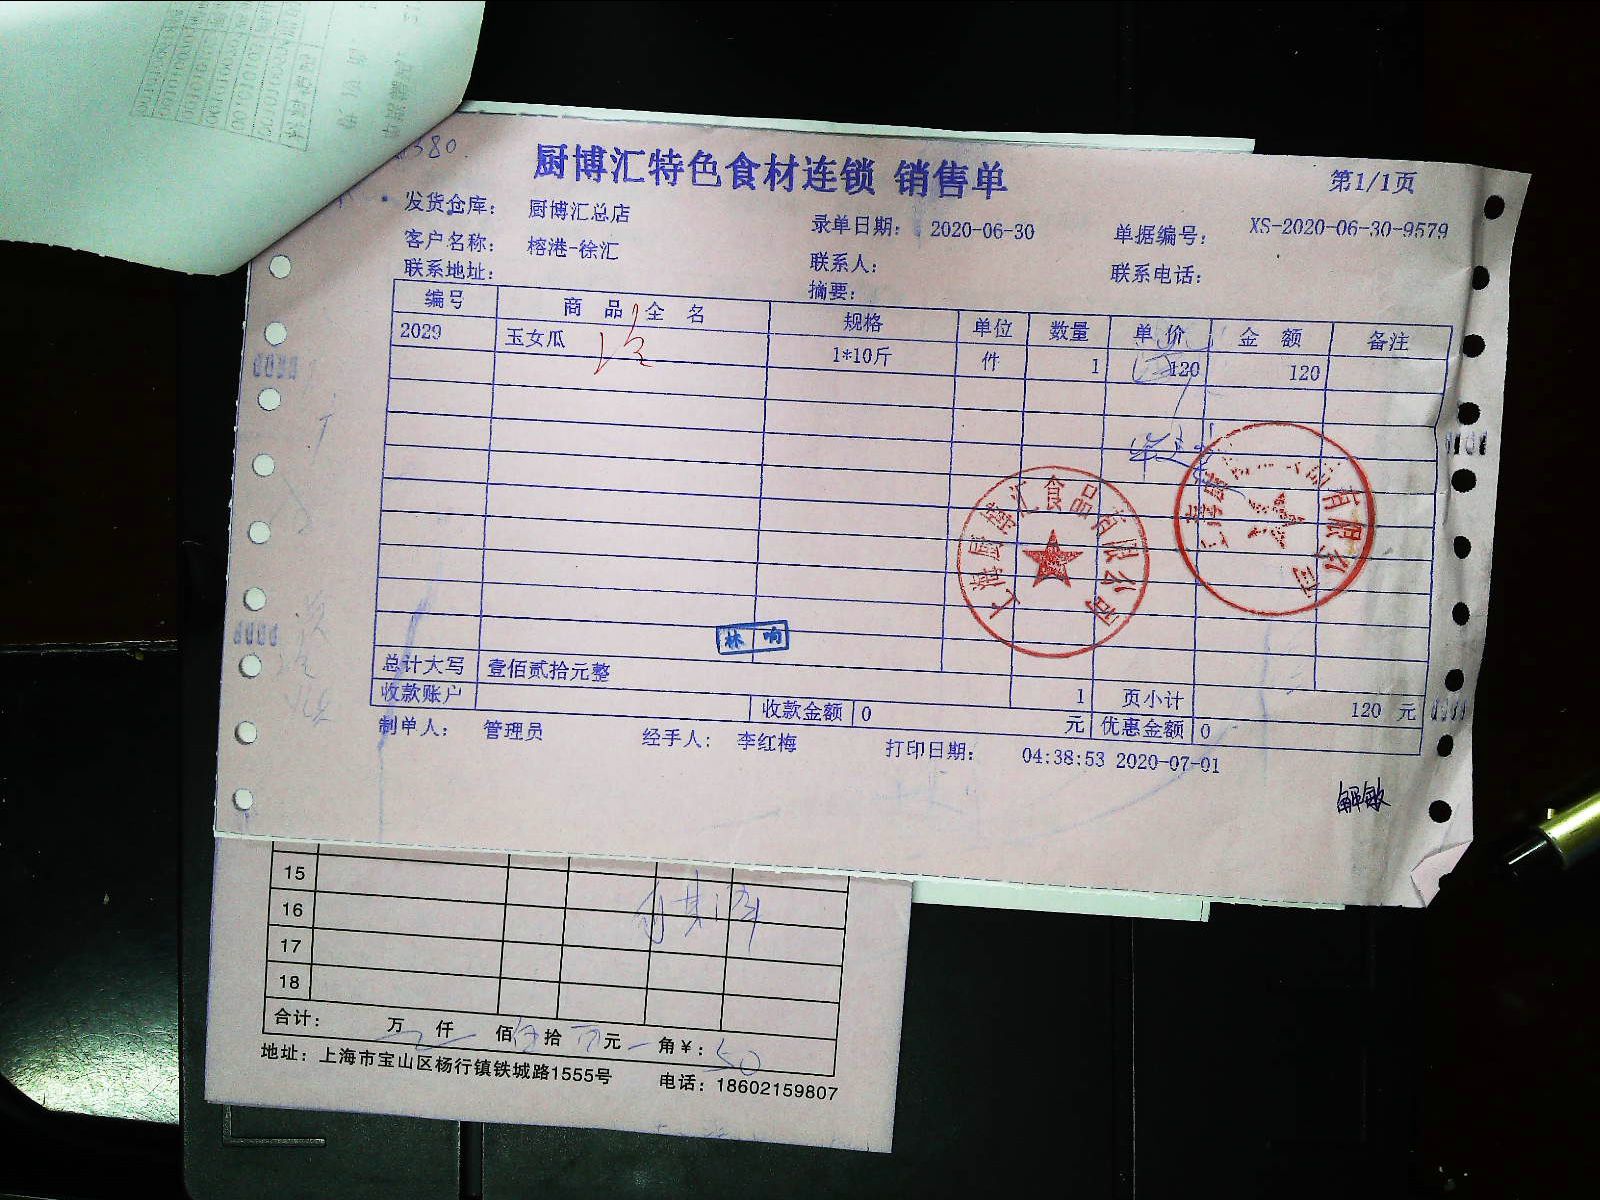 380
厨博汇特色食材连锁 销售单
第1/1页
发货仓库： 厨博汇总店 录单日期： 2020-06-30 单据编号： XS-2020-06-30-9579
客户名称： 榕港-徐汇 联系人： 联系电话：
联系地址： 摘要：
编号 商 品 全 名 规格 单位 数量 单 价 金 额 备注
2029 玉女瓜 1*10斤 件 1 120 120
上海厨博汇食品有限公司
有限公司
林响
总计大写 壹佰贰拾元整 1 页小计 120 元
收款账户 收款金额 0 元 优惠金额 0
制单人： 管理员 经手人： 李红梅 打印日期： 04:38:53 2020-07-01
解敏
15
16
17
18
合计： 万 仟 佰 拾 元 角 ¥： 50
地址：上海市宝山区杨行镇铁城路1555号 电话：18602159807